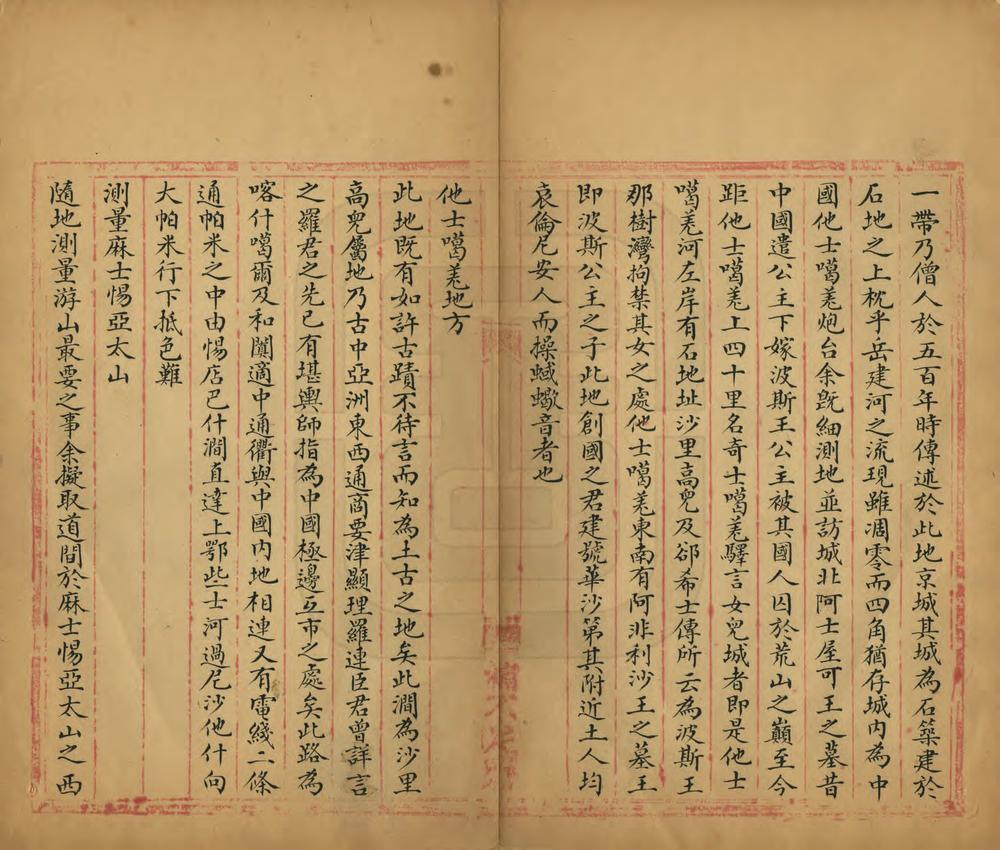 一帶乃僧人於五百年時傳述於此地京城其城為石築建於
石地之上枕乎岳建河之流現雖凋零而四角猶存城内為中
國他士噶羌炮台余旣細測地並訪城北阿士屋可王之墓昔
中國遣公主下嫁波斯王公主被其國人囚於荒山之巔至今
距他士噶羌上四十里名奇士噶羌驛言女兒城者即是他士
噶羌河左岸有石地址沙里高兒及郤希士傳所云為波斯王
那樹灣拘禁其女之處他士噶羌東南有阿非利沙王之墓王
即波斯公主之子此地創國之君建號華沙第其附近土人均
哀倫尼安人而操蜮蠍音者也
他士噶羌地方
此地既有如許古蹟不待言而知為土古之地矣此澗為沙里
高兒屬地乃古中亞洲東西通商要津顯理羅連臣君曾詳言
之羅君之先已有堪輿師指為中國極邊互市之處矣此路為
喀什噶爾及和闐適中通衢與中國内地相連又有電綫二條
通帕米之中由惕店巴什澗直達上鄂些士河過尼沙他什向
大帕米行下抵色難
測量麻士惕亞太山
隨地測量游山最要之事余擬取道間於麻士惕亞太山之西